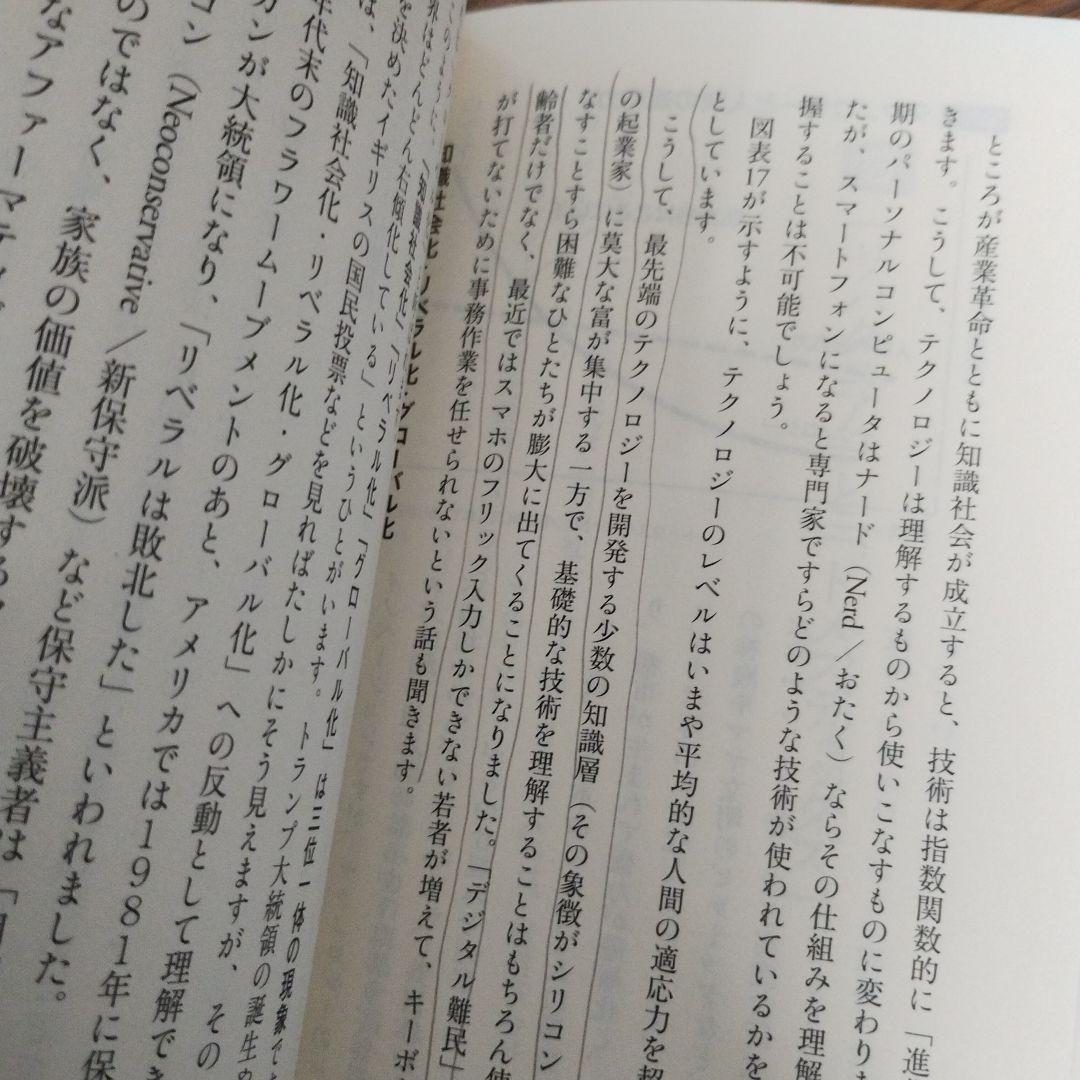 ところが産業革命とともに知識社会が成立すると、技術は指数関数的に「進
きます。こうして、テクノロジーは理解するものから使いこなすものに変わりま
期のパーソナルコンピュータはナード（Nerd／おたく）ならその仕組みを理解
たが、スマートフォンになると専門家ですらどのような技術が使われているかを
握することは不可能でしょう。
図表17が示すように、テクノロジーのレベルはいまや平均的な人間の適応力を超
としています。
こうして、最先端のテクノロジーを開発する少数の知識層（その象徴がシリコン
の起業家）に莫大な富が集中する一方で、基礎的な技術を理解することはもちろん使
なすことすら困難なひとたちが膨大に出てくることになりました。「デジタル難民」
齢者だけでなく、最近ではスマホのフリック入力しかできない若者が増えて、キーボ
が打てないために事務作業を任せられないという話も聞きます。
知識社会化・リベラル化・グローバル化
「知識社会化」「リベラル化」「グローバル化」は三位一体の現象で
界はどんどん右傾化している」というひとがいます。トランプ大統領の誕生
を決めたイギリスの国民投票などを見ればたしかにそう見えますが、その
は、「知識社会化・リベラル化・グローバル化」への反動として理解でき
年代末のフラワームーブメントのあと、アメリカでは1981年に保
ガンが大統領になり、「リベラルは敗北した」といわれました。
コン（Neoconservative／新保守派）など保守主義者は
のではなく、家族の価値を破壊する
なアファーマティブ